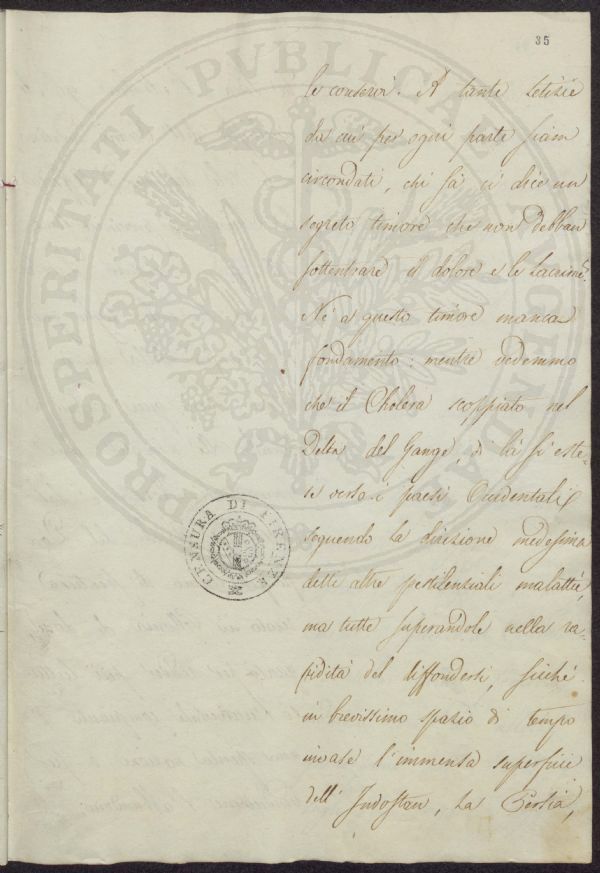 35
le conservi. A tante letizie
da cui per ogni parte siam
circondati, chi sà, ci dice un
segreto timore che non debban
sottentrare il dolore e le lacrime.
Nè a questo timore manca
fondamento: mentre vedemmo
che il Cholera scoppiato nel
Delta del Gange, di là si este-
se verso i paesi Occidentali
seguendo la direzione medesima
delle altre pestilenziali malattie,
ma tutte superandole nella ra-
pidità del diffondersi, sicché
in brevissimo spazio di tempo
invase l'immensa superficie
dell'Indostan, la Persia,
CENSURA DI FIRENZE
PROSPERITATI PUBLICAE AUGENDAE